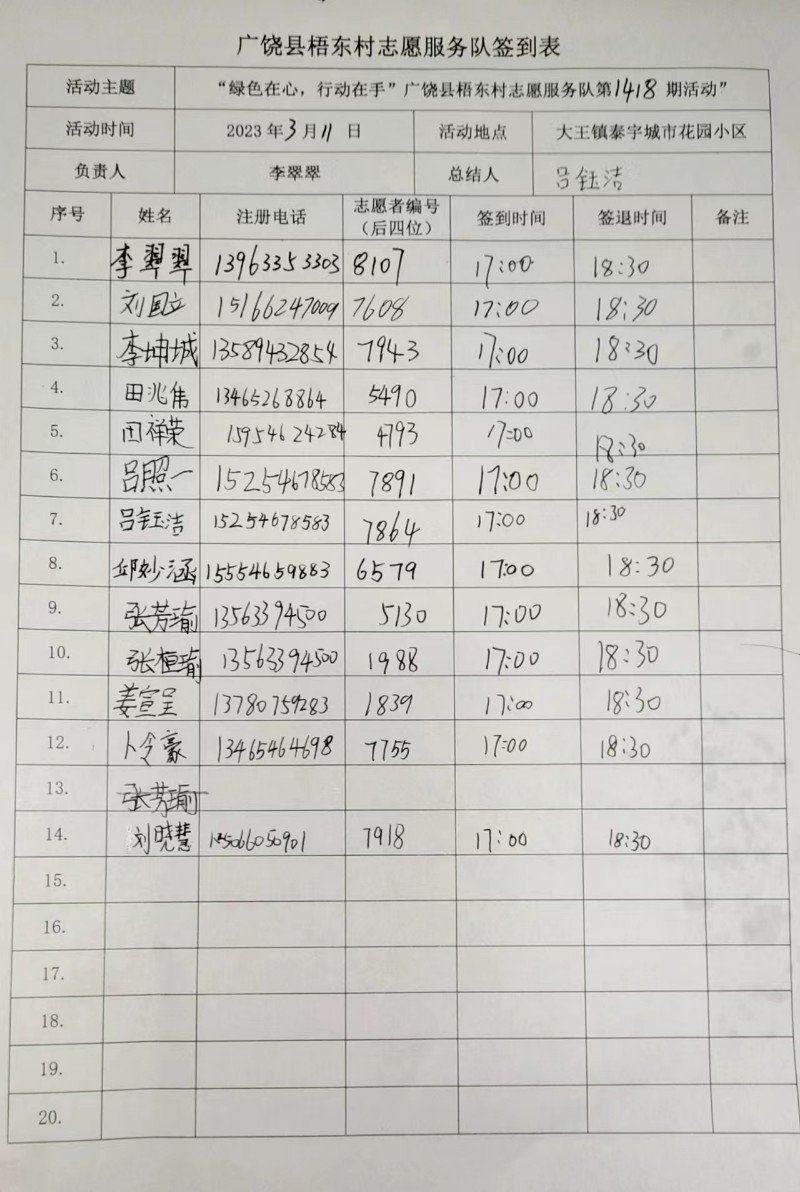 广饶县梧东村志愿服务队签到表
活动主题 “绿色在心，行动在手”广饶县梧东村志愿服务队第1418期活动”
活动时间 2023年3月11日 活动地点 大王镇泰宇城市花园小区
负责人 李翠翠 总结人 吕钰洁
序号 姓名 注册电话 志愿者编号（后四位） 签到时间 签退时间 备注
1. 李翠翠 13963353303 8107 17:00 18:30
2. 刘国立 15166247009 7608 17:00 18:30
3. 李坤城 13589432854 7943 17:00 18:30
4. 田兆隽 13465268864 5490 17:00 18:30
5. 田祥荣 15954624284 4793 17:00 18:30
6. 吕照一 15254678583 7891 17:00 18:30
7. 吕钰洁 15254678583 7864 17:00 18:30
8. 邱妙涵 15554659883 6579 17:00 18:30
9. 张芳瑜 13563394500 5130 17:00 18:30
10. 张桓瑜 13563394500 1988 17:00 18:30
11. 姜宣呈 13780759283 1839 17:00 18:30
12. 卜令豪 13465464698 7755 17:00 18:30
13. 张芳瑜
14. 刘晓慧 7918 17:00 18:30
15.
16.
17.
18.
19.
20.